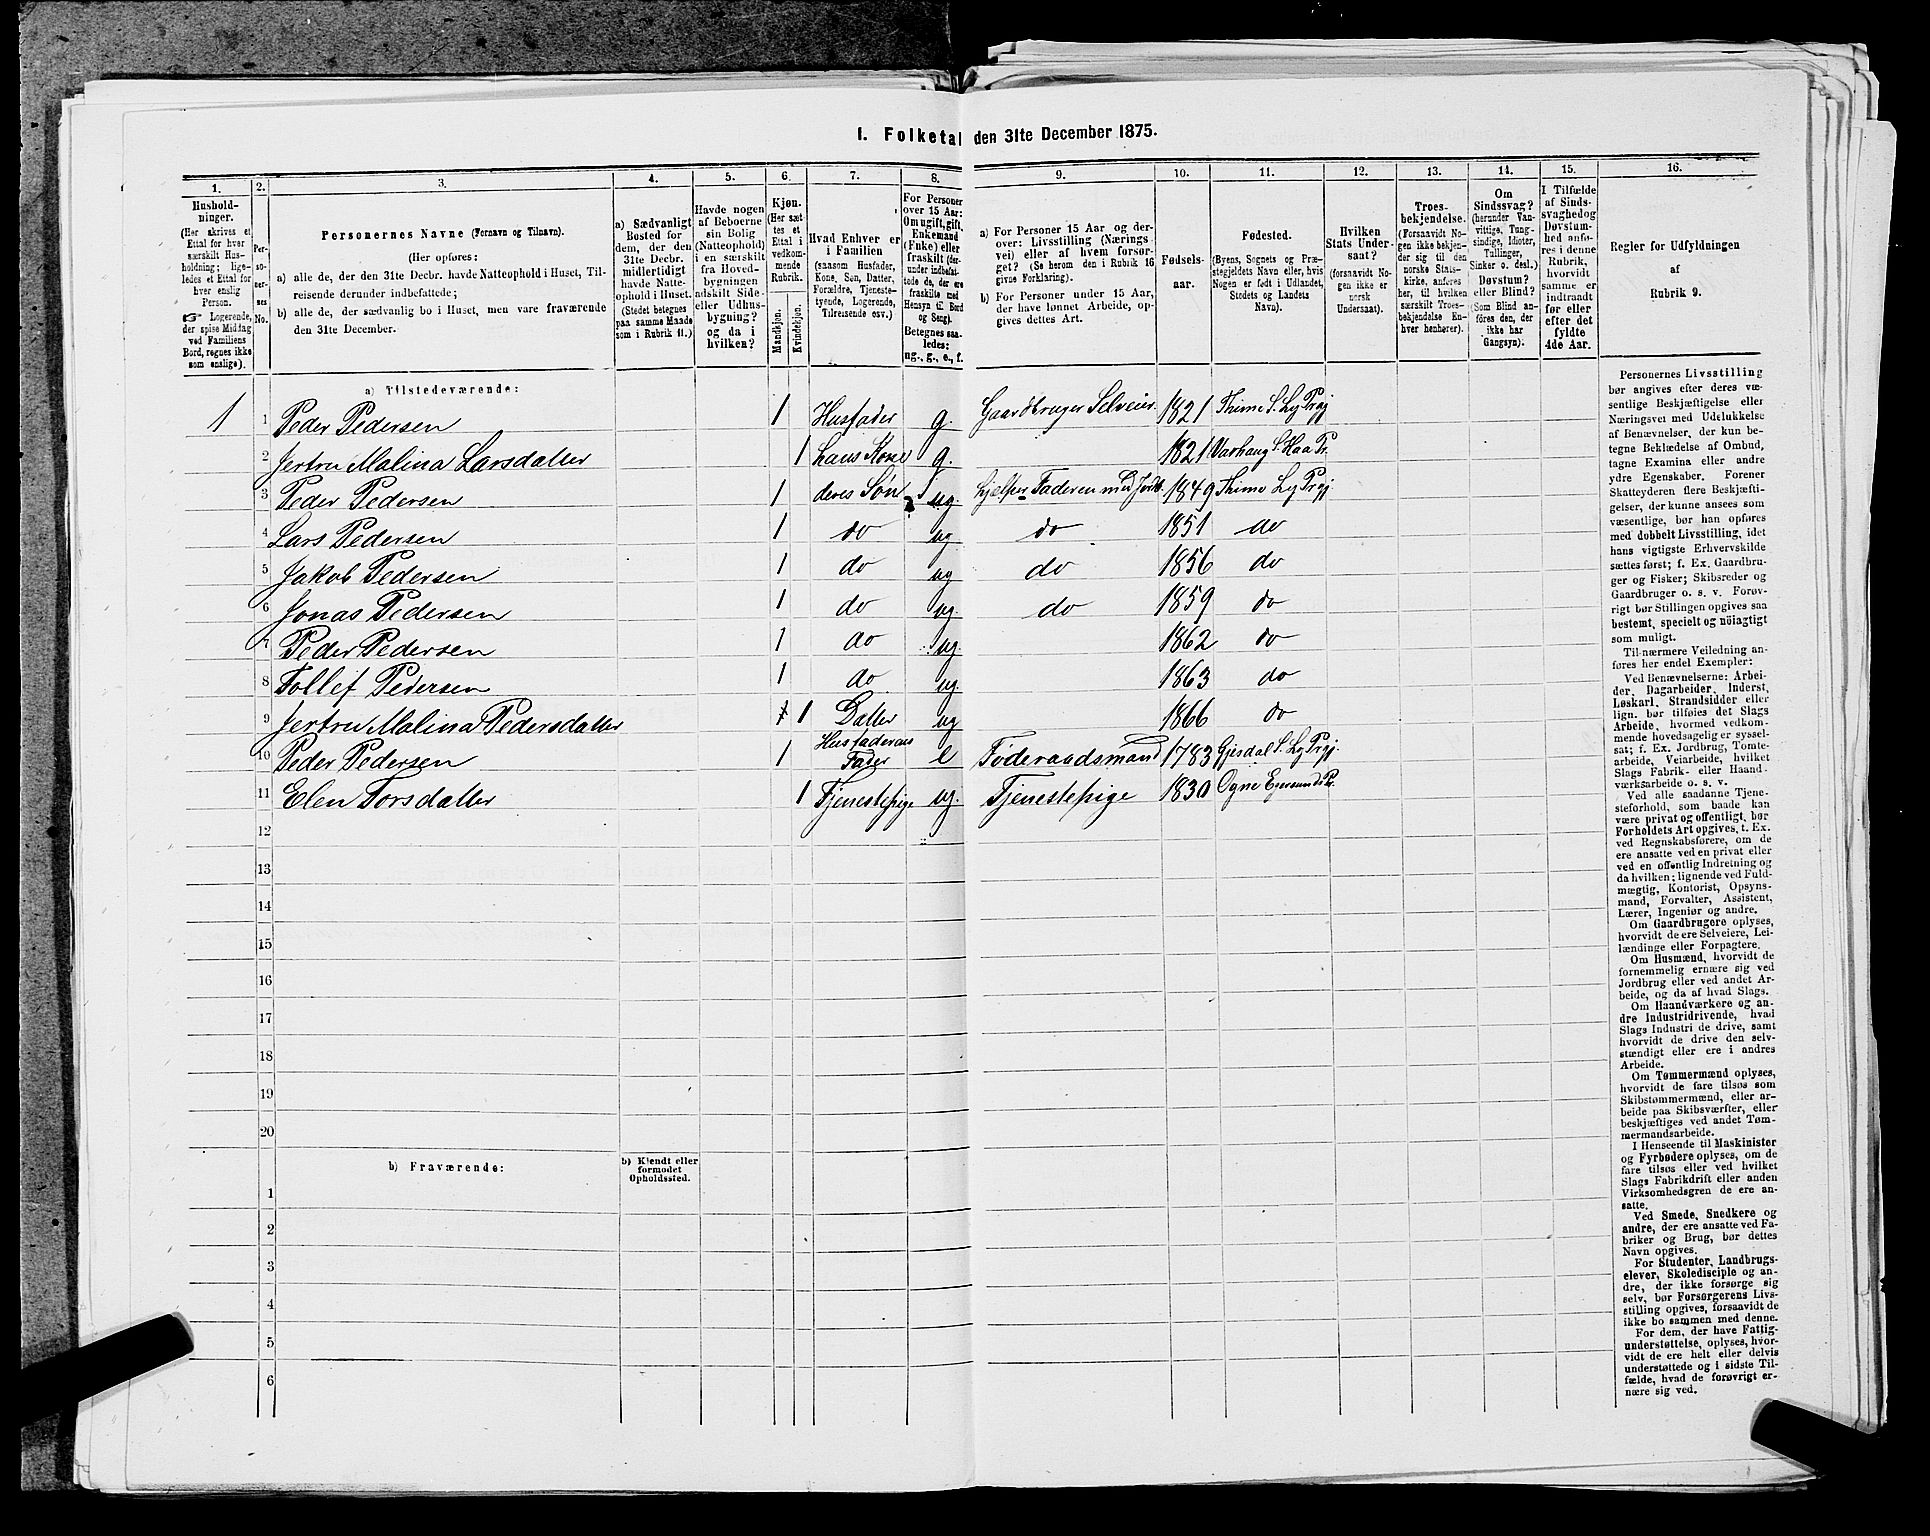 1. Folketal den 31te December 1875.
1.
Husholdninger.
(Her skrives et
Ettal for hver
særskilt Husholdning;
ligeledes et Ettal for
hver enslig
Person.
☞ Logerende,
der spise Middag
ved Familiens
Bord, regnes ikke
som enslige).
2.
Personernes
No.
3.
Personernes Navne (Fornavn og Tilnavn).
(Her opføres:
a) alle de, der den 31te Decbr. havde Natteophold i Huset, Tilreisende derunder indbefattede;
b) alle de, der sædvanlig bo i Huset, men vare fraværende
den 31te December.
4.
a) Sædvanligt
Bosted for
dem, der den
31te Decbr.
midlertidigt
havde Natteophold i Huset.
(Stedet betegnes
paa samme Maade
som i Rubrik 11.)
5.
Havde nogen
af Beboerne
sin Bolig
(Natteophold)
i en særskilt
fra Hovedbygningen
adskilt Side-
eller Udhusbygning?
og da i
hvilken?
6.
Kjøn.
(Her sættes et
Ettal i
vedkommende
Rubrik.
Mandkjøn.
Kvindekjøn.
7.
Hvad Enhver er
i Familien
(saasom Husfader,
Kone, Søn, Datter,
Forældre, Tjenestetyende, Logerende,
Tilreisende osv.)
8.
For Personer
over 15 Aar:
Om ugift, gift,
Enkemand
(Enke) eller
fraskilt (derunder indbefattede de, der ere
fraskilte med
Hensyn til Bord
og Seng).
Betegnes saaledes:
ug., g., e., f.
9.
a) For Personer 15 Aar og derover: Livsstilling (Næringsvei) eller af hvem forsørget? (Se herom den i Rubrik 16
givne Forklaring).
b) For Personer under 15 Aar,
der have lønnet Arbeide, opgives dettes Art.
10.
Fødselsaar.
11.
Fødested.
(Byens, Sognets og Præstegjeldets Navn eller, hvis
Nogen er født i Udlandet,
Stedets og Landets
Navn).
12.
Hvilken
Stats Undersaat?
(forsaavidt Nogen ikke er
norsk
Undersaat).
13.
Troesbekjendelse.
(Forsaavidt Nogen ikke bekjender sig til den
norske Statskirke, anføres
her, til hvilken
særskilt Troesbekjendelse Enhver henhører).
14.
Om
Sindssvag?
(herunder Vanvittige, Tungsindige, Idioter,
Tullinger,
Sinker o. desl.)
Døvstum?
eller Blind?
(Som Blind anføres den, der
ikke har
Gangsyn).
15.
I Tilfælde
af Sindssvaghed og
Døvstumhed anføres i denne
Rubrik,
hvorvidt
samme er
indtraadt
før eller
efter det
fyldte
4de Aar.
16.
Regler for Udfyldningen
af
Rubrik 9.
a) Tilstedeværende:
1 1 Peder Pedersen 1 Husfader g. Gaardbruger Selveier. 1821 Thime S. Ly Prgj
2 Jertru Malina Larsdatter 1 hans Kone g. 1821 Varhaug S. Haa Pr.
3 Peder Pedersen 1 deres Søn ug. hjelper Faderen med Jordb. 1849 Thime Ly Prgj.
4 Lars Pedersen 1 do ug do 1851 do
5 Jakob Pedersen 1 do ug do 1856 do
6 Jonas Pedersen 1 do ug do 1859 do
7 Peder Pedersen 1 do ug. 1862 do
8 Tollef Pedersen 1 do ug. 1863 do
9 Jertru Malina Pedersdatter 1 Datter ug 1866 do
10 Peder Pedersen 1 Husfaderens Fader e Føderaadsmand 1783 Gjesdal S. Ly Prgj.
11 Elen Torsdatter 1 Tjenestepige ug. Tjenestepige 1830 Ogne Egersunds Pr.
12
13
14
15
16
17
18
19
20
b) Fraværende:
b) Kjendt eller
formodet
Opholdssted.
1
2
3
4
5
6
Personernes Livsstilling
bør angives efter deres væsentlige Beskjæftigelse eller
Næringsvei med Udelukkelse
af Benævnelser, der kun betegne Beklædelse af Ombud,
tagne Examina eller andre
ydre Egenskaber. Forener
Skatteyderen flere Beskjæftigelser, der kunne ansees som
væsentlige, bør han opføres
med dobbelt Livsstilling, idet
hans vigtigste Erhvervskilde
sættes først; f. Ex. Gaardbruger og Fisker; Skibsreder og
Gaardbruger o. s. v. Forøvrigt bør Stillingen opgives saa
bestemt, specielt og nöiagtigt
som muligt.
Til nærmere Veiledning anføres her endel Exempler:
Ved Benævnelserne: Arbeider, Dagarbeider, Inderst,
Løskarl, Strandsidder eller
lign. bør tilføies det Slags
Arbeide, hvormed vedkommende hovedsagelig er sysselsat; f. Ex. Jordbrug, Tomtearbeide, Veiarbeide, hvilket
Slags Fabrik- eller Haandværksarbeide o. s. v.
Ved alle saadanne Tjenesteforhold, som baade kan
være privat og offentligt, bør
Forholdets Art opgives, t. Ex.
ved Regnskabsførere, om de
ere ansatte ved en privat eller
ved en offentlig Indretning og
da hvilken; lignende ved Fuldmægtig, Kontorist, Opsynsmand, Forvalter, Assistent,
Lærer, Ingeniør og andre.
Om Gaardbrugere oplyses,
hvorvidt de ere Selveiere, Leilændinge eller Forpagtere.
Om Husmænd, hvorvidt de
fornemmelig ernære sig ved
Jordbrug eller ved andet Arbeide, og da af hvad Slags.
Om Haandværkere og andre Industridrivende, hvad
Slags Industri de drive, samt
hvorvidt de drive den selvstændigt eller ere i andres
Arbeide.
Om Tømmermænd oplyses,
hvorvidt de fare tilsøs som
Skibstømmermænd, eller arbeide paa Skibsværfter, eller
beskjæftiges ved andet Tømmermandsarbeide.
I Henseende til Maskinister
og Fyrbødere oplyses, om de
fare tilsøs eller ved hvilket
Slags Fabrikdrift eller anden
Virksomhedsgren de ere ansatte.
Ved Smede, Snedkere og
andre, der ere ansatte ved Fabriker og Brug, bør dettes
Navn opgives.
For Studenter, Landbrugselever, Skoledisciple og andre, der ikke forsørge sig
selv, bør Forsørgerens Livsstilling opgives, forsaavidt de
ikke bo sammen med denne.
For dem, der have Fattigunderstøttelse, oplyses, hvorvidt de ere helt eller delvis
understøttede og i sidste Tilfælde, hvad de forøvrigt ernære sig ved.